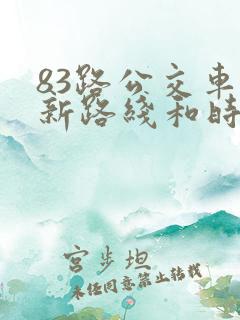 83路公交车
新路线和时
宫步坦
未经同意禁止转载